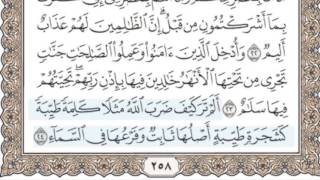 بِمَآ أَشْرَكْتُمُونِ مِن قَبْلُ إِنَّ ٱلظَّٰلِمِينَ لَهُمْ عَذَابٌ
أَلِيمٌ ٢٢ وَأُدْخِلَ ٱلَّذِينَ ءَامَنُوا۟ وَعَمِلُوا۟ ٱلصَّٰلِحَٰتِ جَنَّٰتٍ
تَجْرِى مِن تَحْتِهَا ٱلْأَنْهَٰرُ خَٰلِدِينَ فِيهَا بِإِذْنِ رَبِّهِمْ تَحِيَّتُهُمْ
فِيهَا سَلَٰمٌ ٢٣ أَلَمْ تَرَ كَيْفَ ضَرَبَ ٱللَّهُ مَثَلًا كَلِمَةً طَيِّبَةً
كَشَجَرَةٍ طَيِّبَةٍ أَصْلُهَا ثَابِتٌ وَفَرْعُهَا فِى ٱلسَّمَآءِ ٢٤
٢٥٨